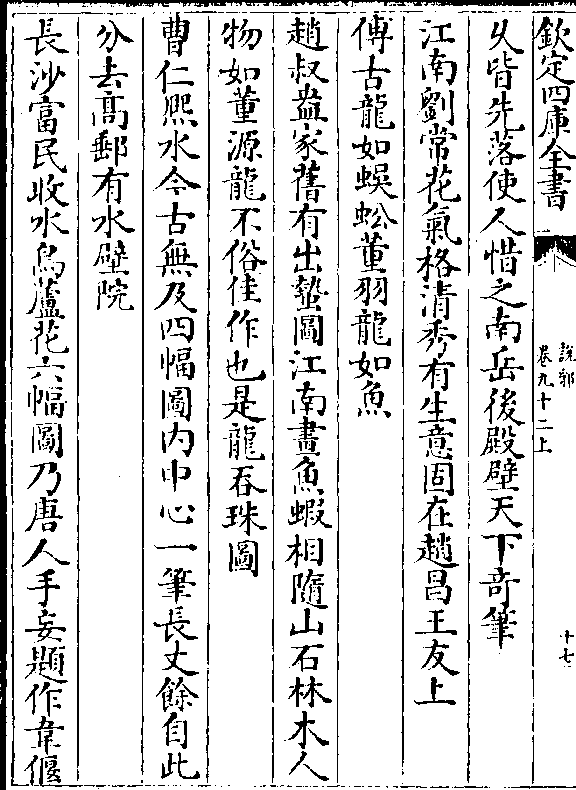 欽定四庫全書
說郛
卷九十二上
十七
乆皆先落使人惜之南岳後殿壁天下竒筆
江南劉常花氣格清秀有生意固在趙昌王友上
傅古龍如蜈蚣董羽龍如魚
趙叔盎家舊有出蟄圖江南畫魚蝦相隨山石林木人
物如董源龍不俗佳作也是龍吞珠圖
曹仁熙水今古無及四幅圖内中心一筆長丈餘自此
分去髙郵有水壁院
長沙富民收水鳥蘆花六幅圖乃唐人手妄題作韋偃